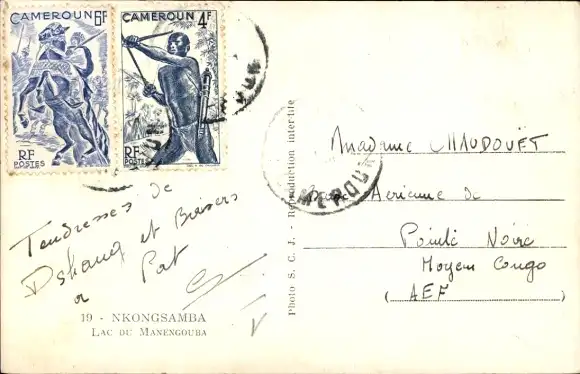 CAMEROUN 6F
RF
POSTES
CAMEROUN 4F
RF
POSTES
CAMEROUN
Tendresses de
Dshang et Baisers
a Pat
19 - NKONGSAMBA
LAC DU MANENGOUBA
Photo S. C. J. - Reproduction interdite
Madame CHAUDOUËT
Base Aérienne de
Pointe Noire
Moyen Congo
(AEF)